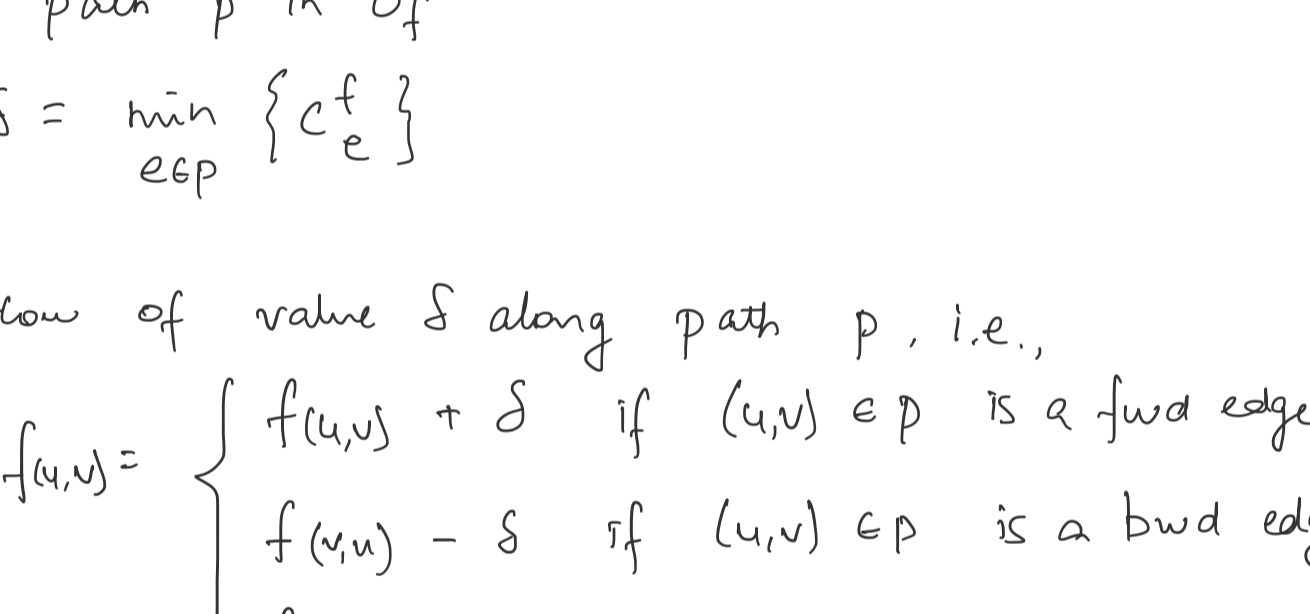 path p in Gf
δ = min {c^f_e}
e∈p
of value δ along path p, i.e.,
f(u,v) = { f(u,v) + δ if (u,v) ∈ p is a fwd edge
f(v,u) - δ if (u,v) ∈ p is a bwd